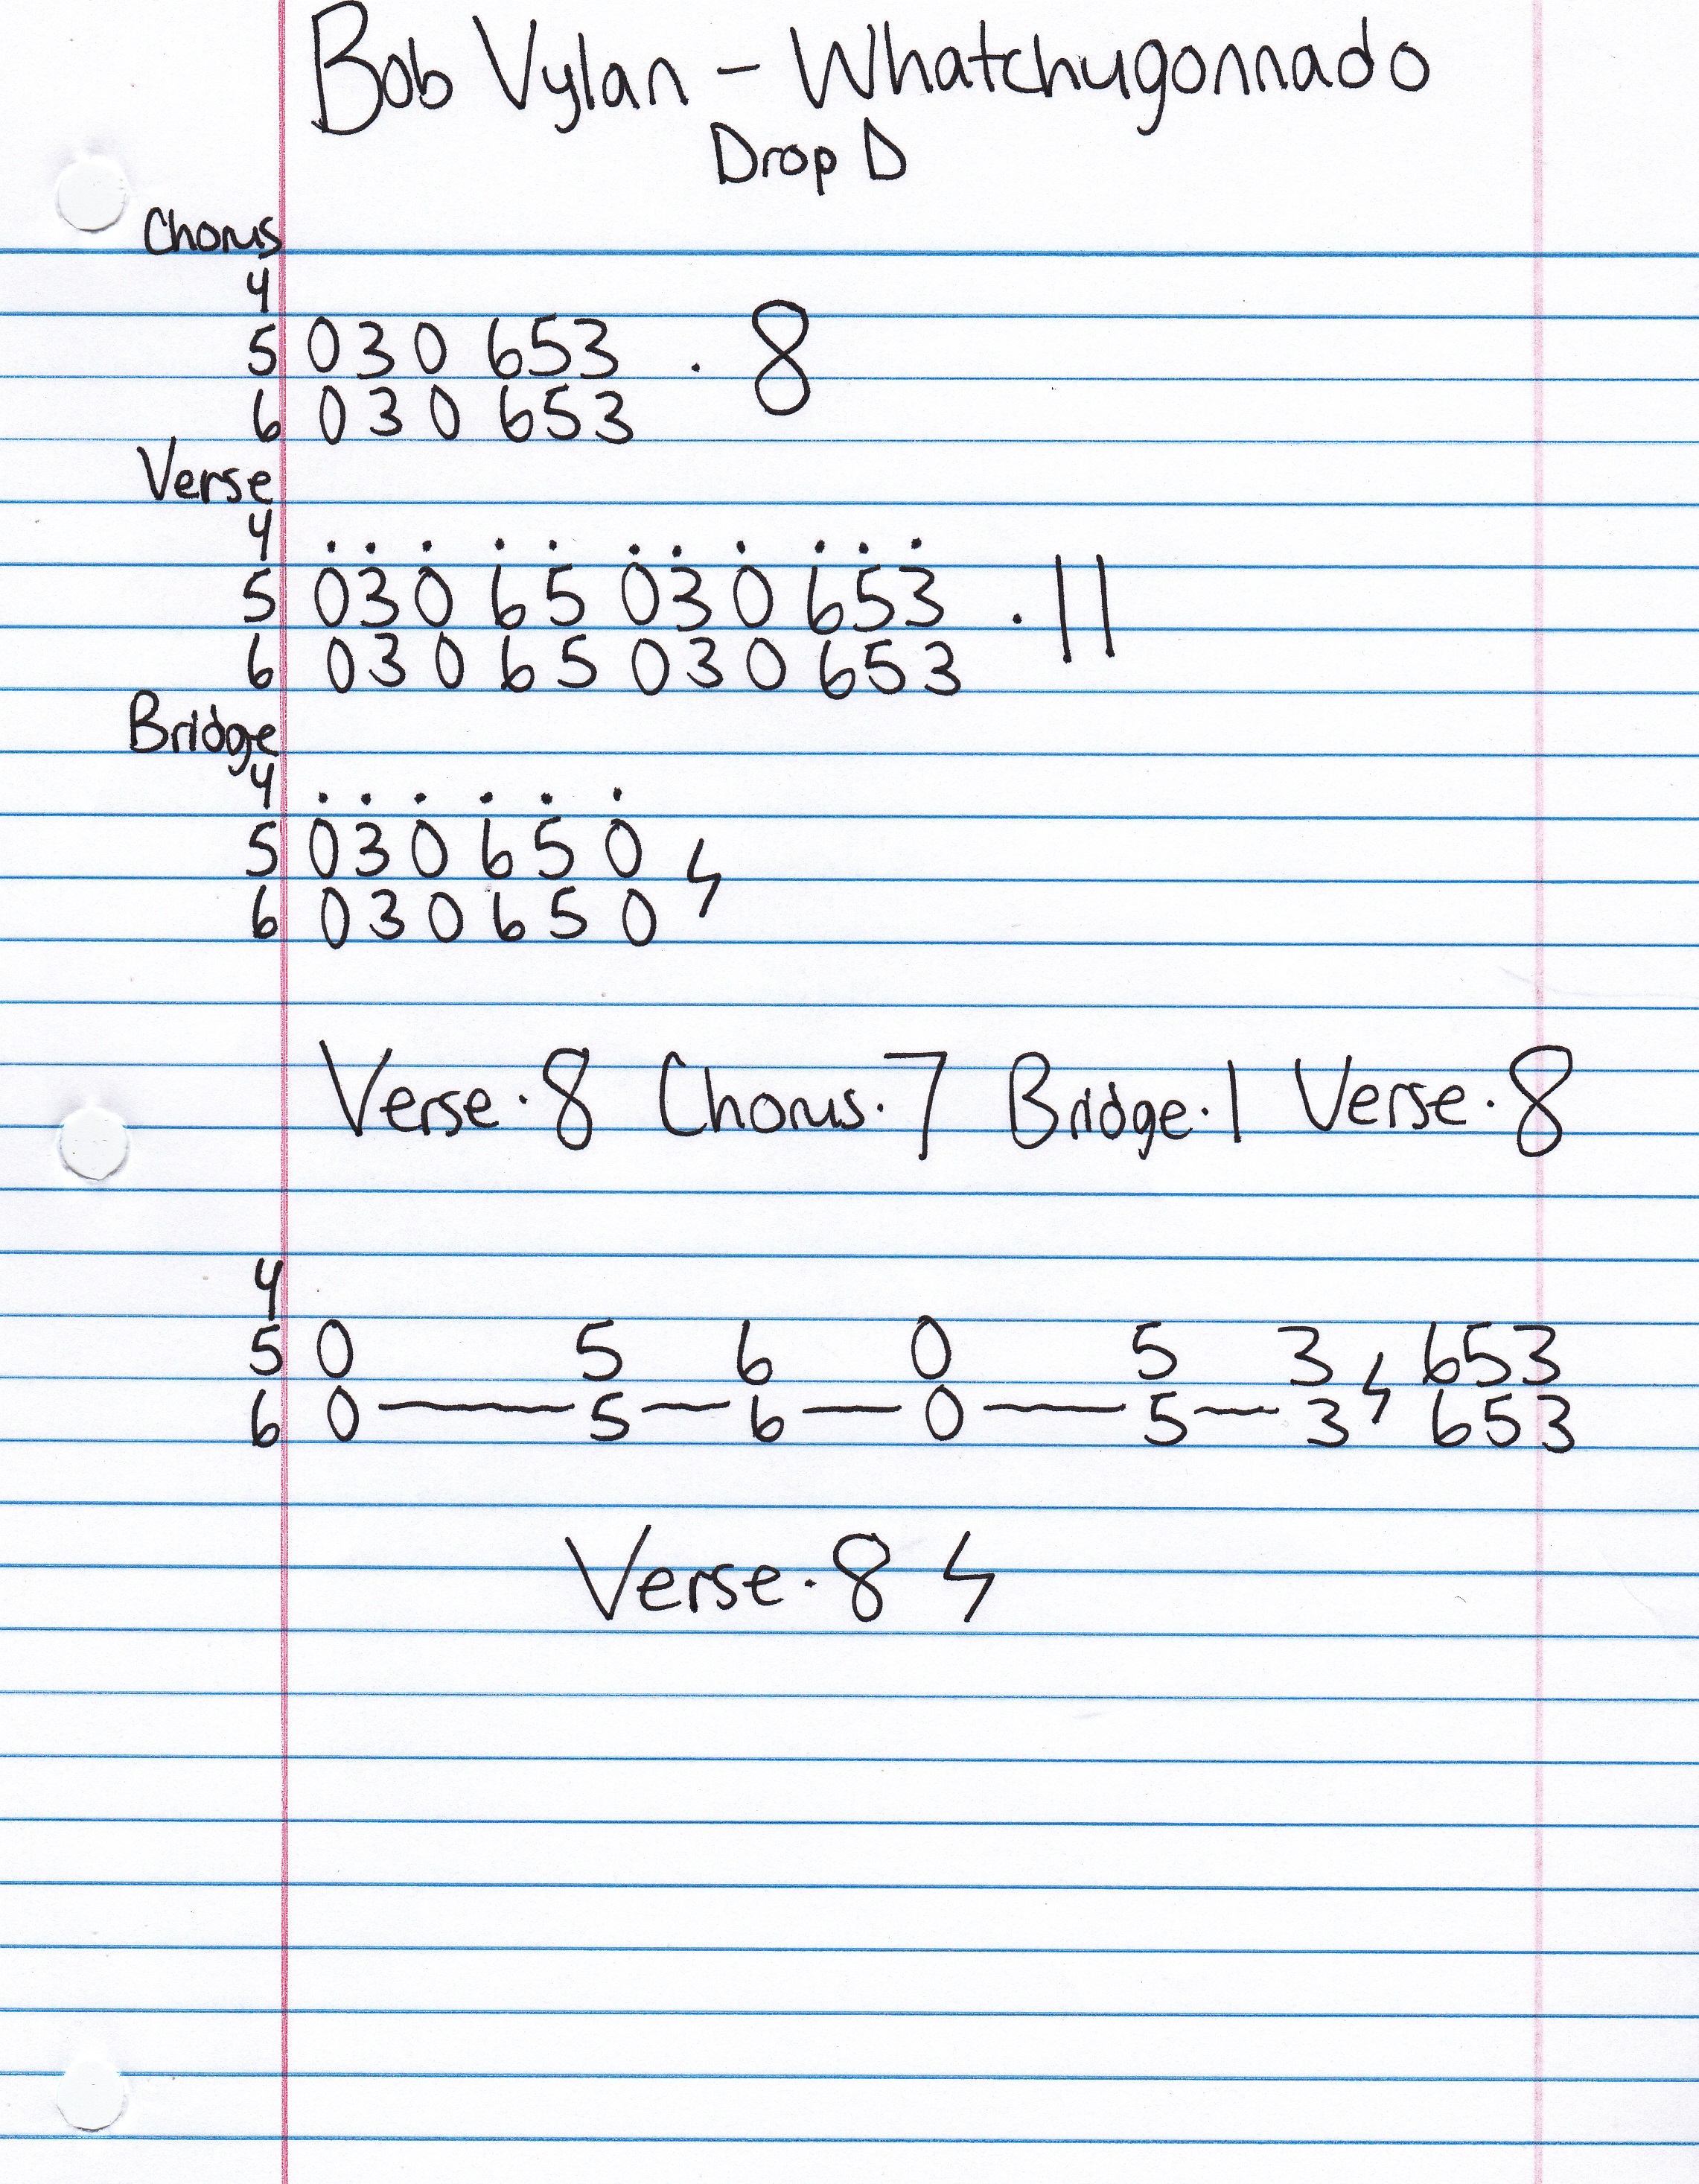 Bob Vylan - Whatchugonnado
Drop D
Chorus
4
5 030 653 . 8
6 030 653
Verse
4 . . . . . . . . . . .
5 030 65 030 653 . 11
6 030 65 030 653
Bridge
4 . . . . . .
5 030 65 0
6 030 65 0
Verse · 8 Chorus · 7 Bridge · 1 Verse · 8
4
5 0 5 6 0 5 3 653
6 0 — 5 — 6 — 0 — 5 — 3 653
Verse · 8